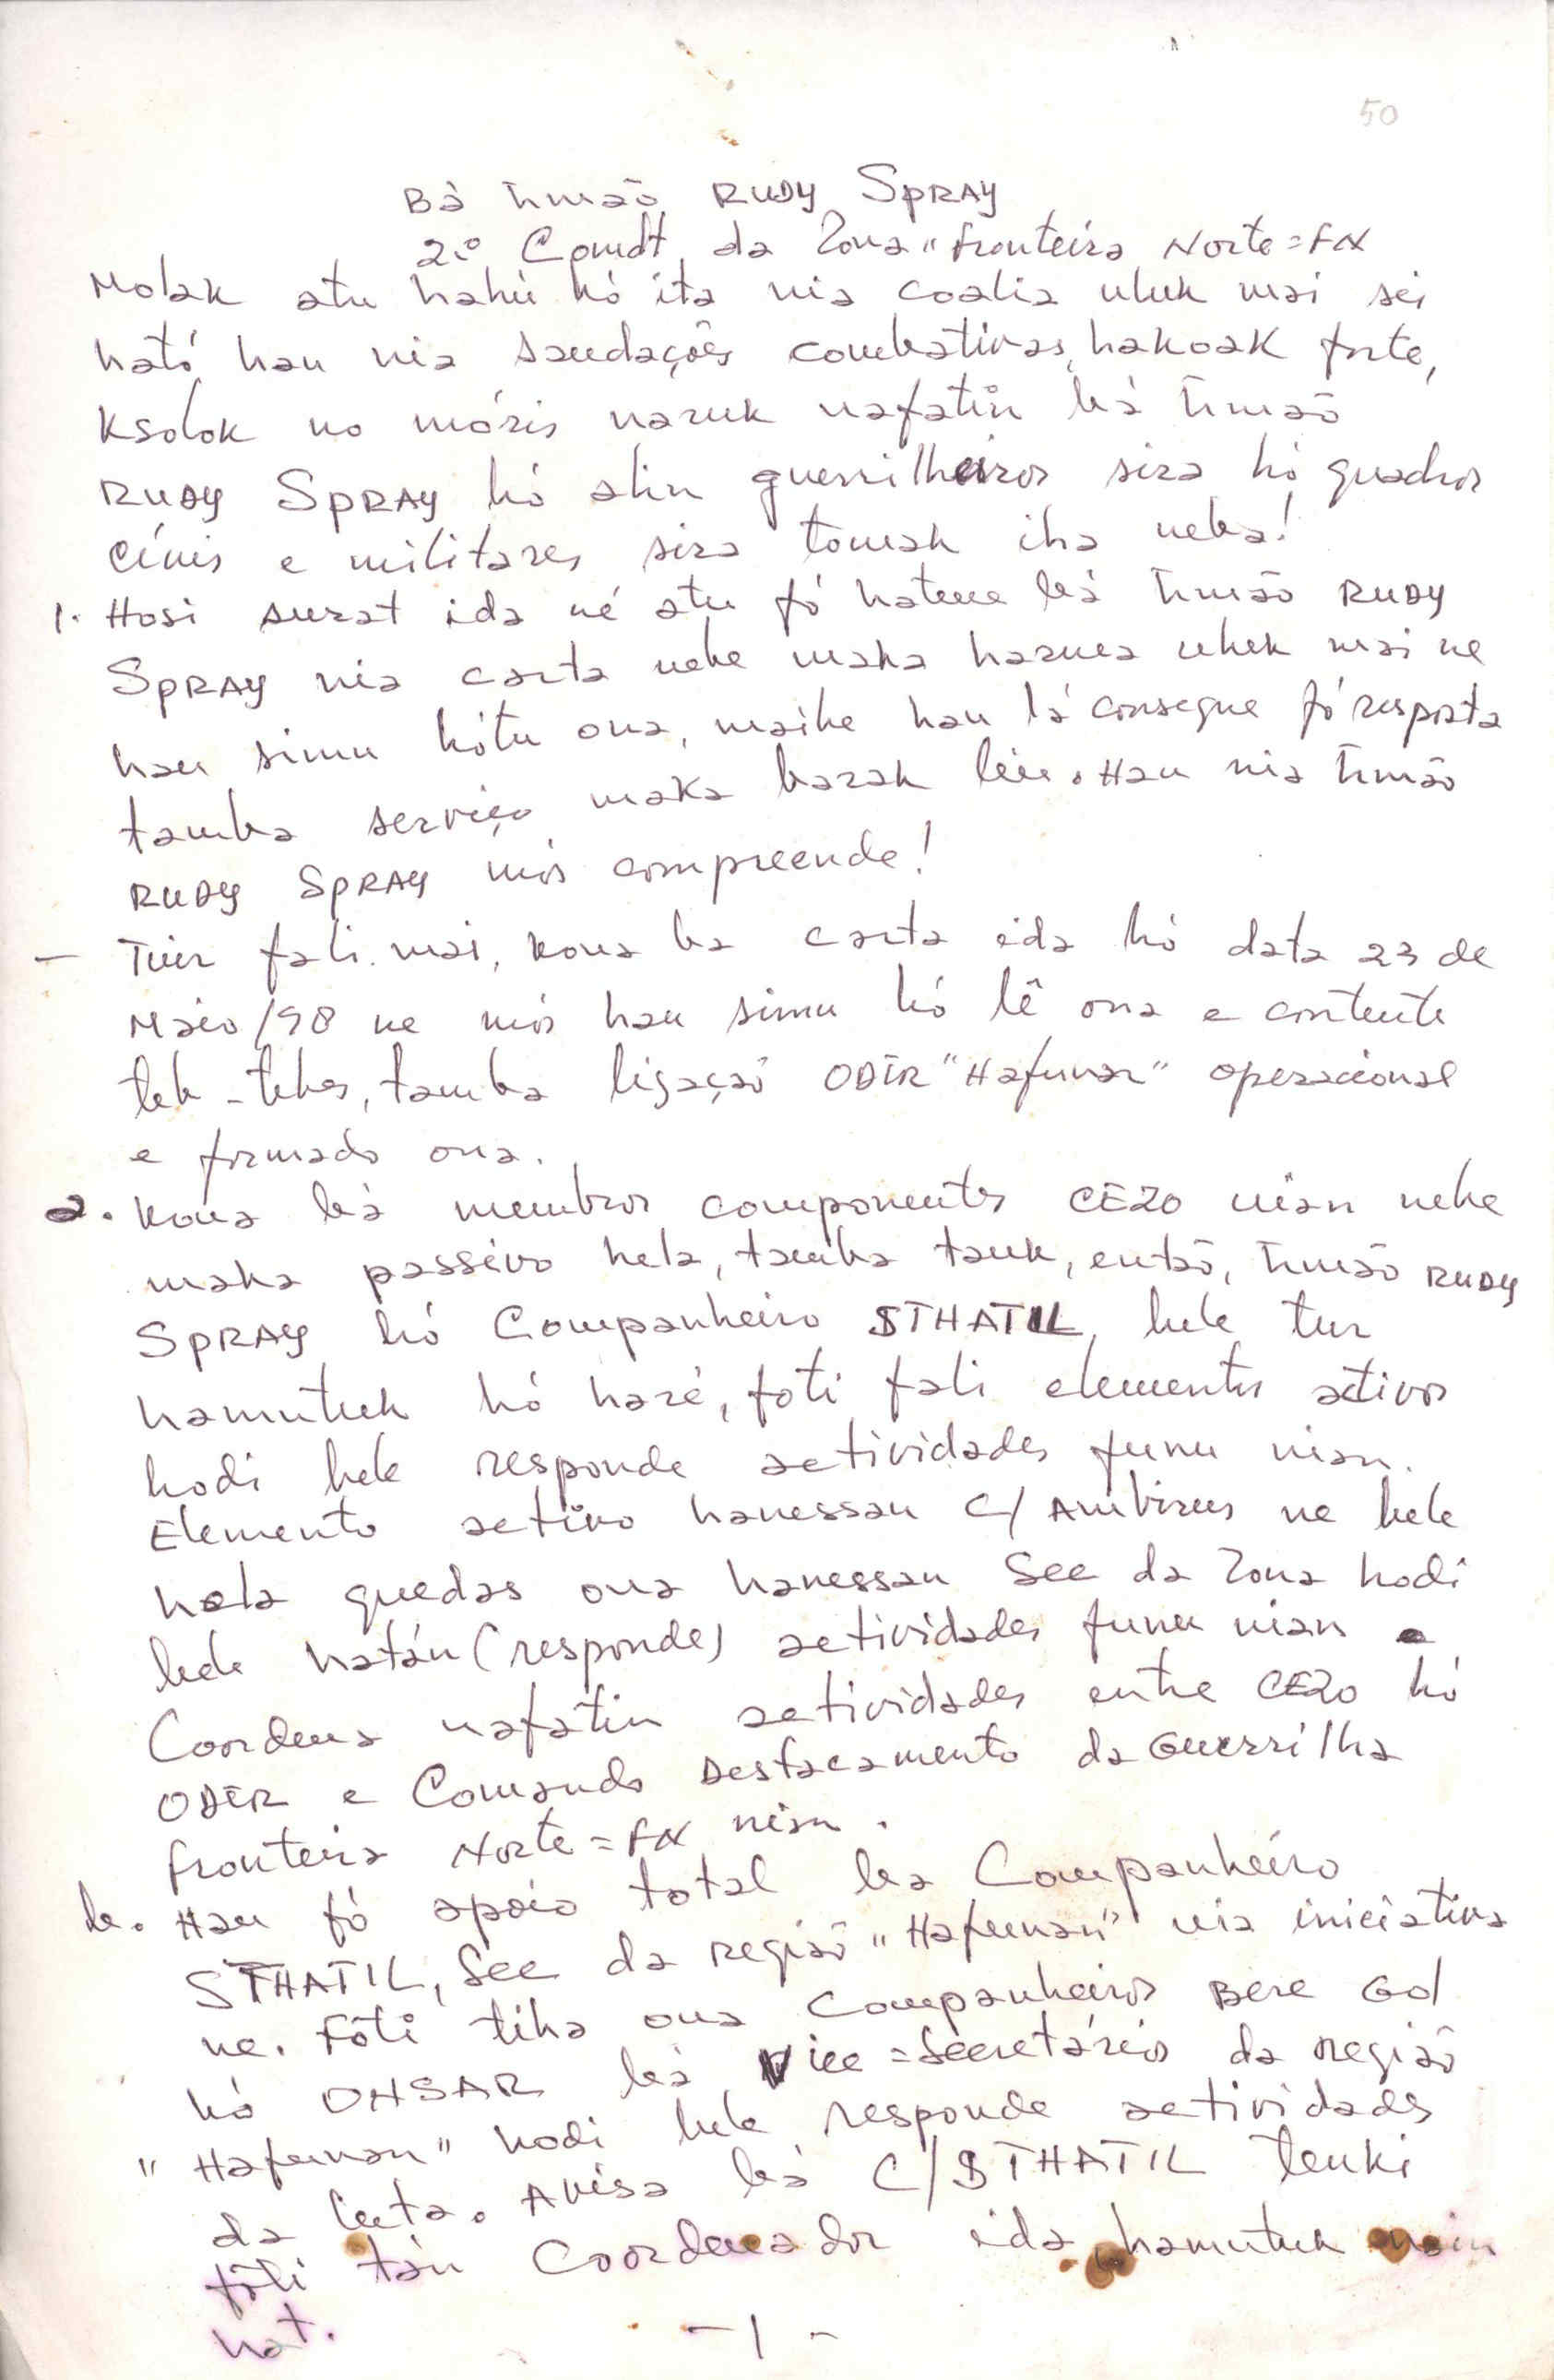 50
Bà Irmão RUDY SPRAY
2.º Comdt da Zona "Fronteira Norte=FN
Molak atu hahú hó ita nia coalia uluk mai sei
ható hau nia saudações combativas, hakoak forte,
ksolok no móris naruk nafatin bá Irmão
RUDY SPRAY hó alin guerrilheiros sira hó quadros
civis e militares sira tomak iha neba!
1. Hosi surat ida né atu fó hatene bá Irmão RUDY
SPRAY nia carta nebe maka haruka uluk mai ne
hau simu hótu ona, maibe hau lá consegue fó resposta
tamba serviço maka barak liu. Hau nia Irmão
RUDY SPRAY mós compreende!
- Tuir fali mai, kona ba carta ida hó data 23 de
Maio/98 ne mós hau simu hó lê ona e contente
teb-tebes, tamba ligação ODIR "Hafunar" operacional
e formado ona.
2. Kona bá membros componentes CEZO nian nebe
maka passivo hela, tamba tauk, então, Irmão RUDY
SPRAY hó Companheiro STHATIL, bele tur
hamutuk hó haré, foti fali elementos activos
hodi bele responde actividades funu nian.
Elemento activo hanessan C/ Ambirus ne bele
hola quedas ona hanessan Sec da Zona hodi
bele hatán (responde) actividades funu nian e
Coordena nafatin actividades entre CEZO hó
ODIR e Comando Destacamento da Guerrilha
Fronteira Norte=FN nian.
b. Hau fó apoio total ba Companheiro
STHATIL, Sec da região "Hafunar" nia iniciativa
ne. Fóti tiha ona Companheiros Bere God
hó ONSAR bá Vice=Secretários da região
"Hafunar" hodi bele responde actividades
da luta. Avisa bá C/STHATIL tenki
fóti tán Coordenador ida, hamutuk nain
hat.
- 1 -